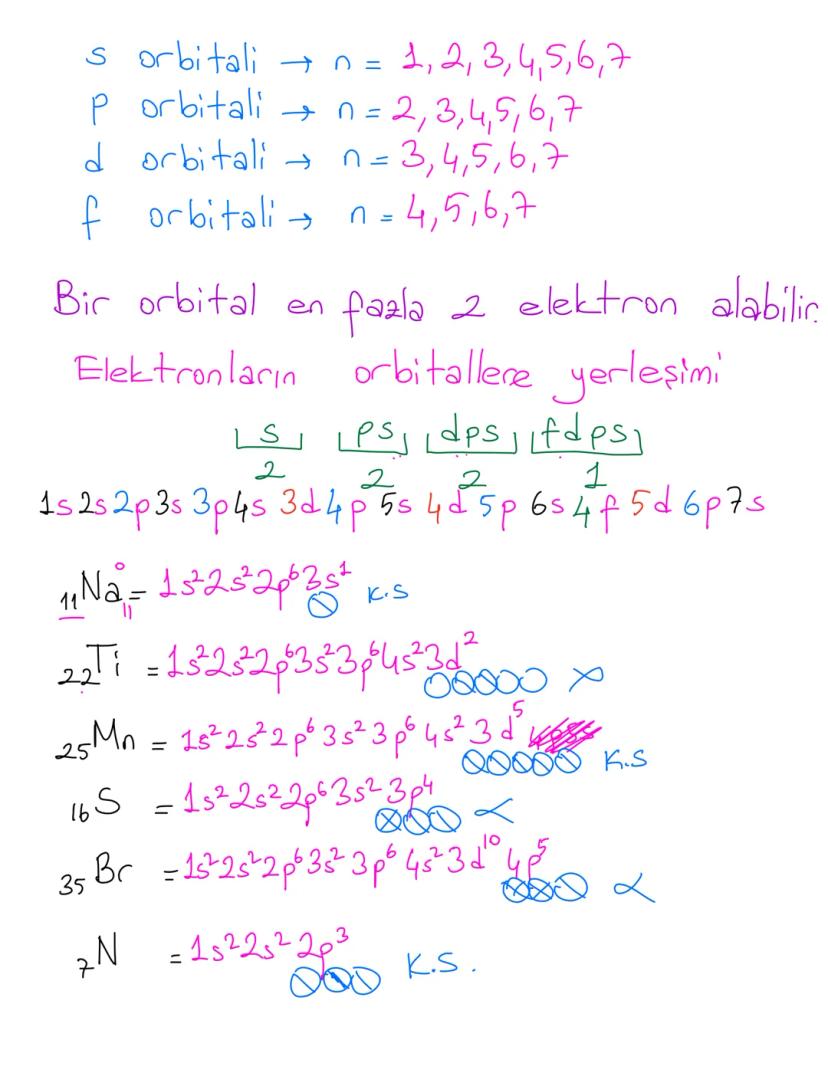 s orbitali → n = 1, 2, 3, 4, 5, 6, 7
p orbitali → n = 2, 3, 4, 5, 6, 7
d orbitali → n = 3, 4, 5, 6, 7
f orbitali → n = 4, 5, 6, 7
Bir orbital en fazla 2 elektron alabilir.
Elektronların orbitallere yerleşimi
s ps dps fdps
2 2 2 1
1s 2s 2p 3s 3p 4s 3d 4p 5s 4d 5p 6s 4f 5d 6p 7s
₁₁Na⁰₁₁ = 1s²2s²2p⁶3s¹ K.S
₂₂Ti = 1s²2s²2p⁶3s²3p⁶4s²3d²
₂₅Mn = 1s²2s²2p⁶3s²3p⁶4s²3d⁵ K.S
₁₆S = 1s²2s²2p⁶3s²3p⁴
₃₅Br = 1s²2s²2p⁶3s²3p⁶4s²3d¹⁰4p⁵
₇N = 1s²2s²2p³ K.S.